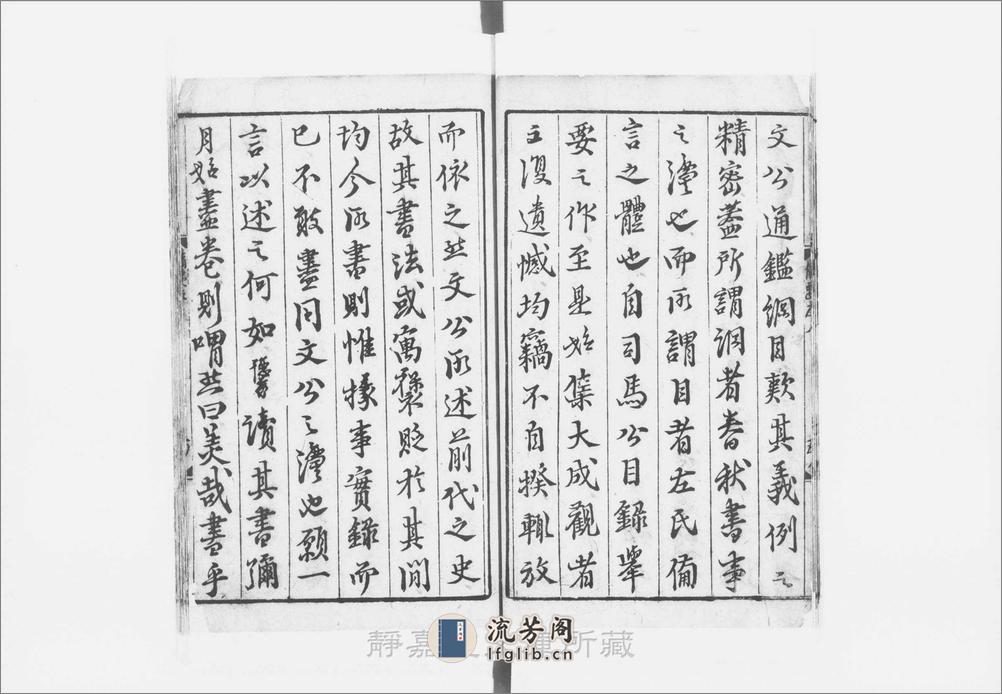 文公通鑑綱目歟其義例之
精密蓋所謂綱者春秋書事
之法也而所謂目者左氏備
言之體也自司馬公目錄舉
要之作至是始集大成觀者
亡復遺憾均竊不自揆輒放
而依之然文公所述前代之史
故其書法或寓褒貶於其間
均今所書則惟據事實錄而
已不敢盡同文公之法也願一
言以述之何如讀其書彌
月始盡卷則喟然曰美哉書乎
靜嘉 所藏
流芳阁
lfglib.cn